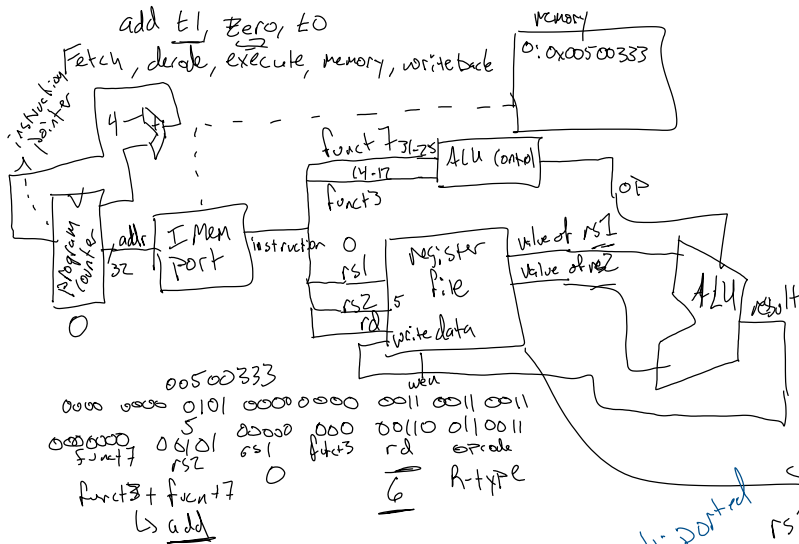 add t1, zero, t0
Fetch, decode, execute, memory, writeback
memory
0: 0x00500333
instruction
pointer
4
+
program
counter
0
addr
32
I Mem
port
instruction
funct7 31-25
14-12
funct3
ALU control
op
0
rs1
rs2
5
rd
register
file
write data
wen
value of rs1
value of rs2
ALU
result
00500333
0000 0000 0101 0000 0000 0011 0011 0011
5
0000000 00101 00000 000 00110 0110011
funct7 rs2 rs1 funct3 rd opcode
0
6
R-type
funct3 + funct7
↳ add